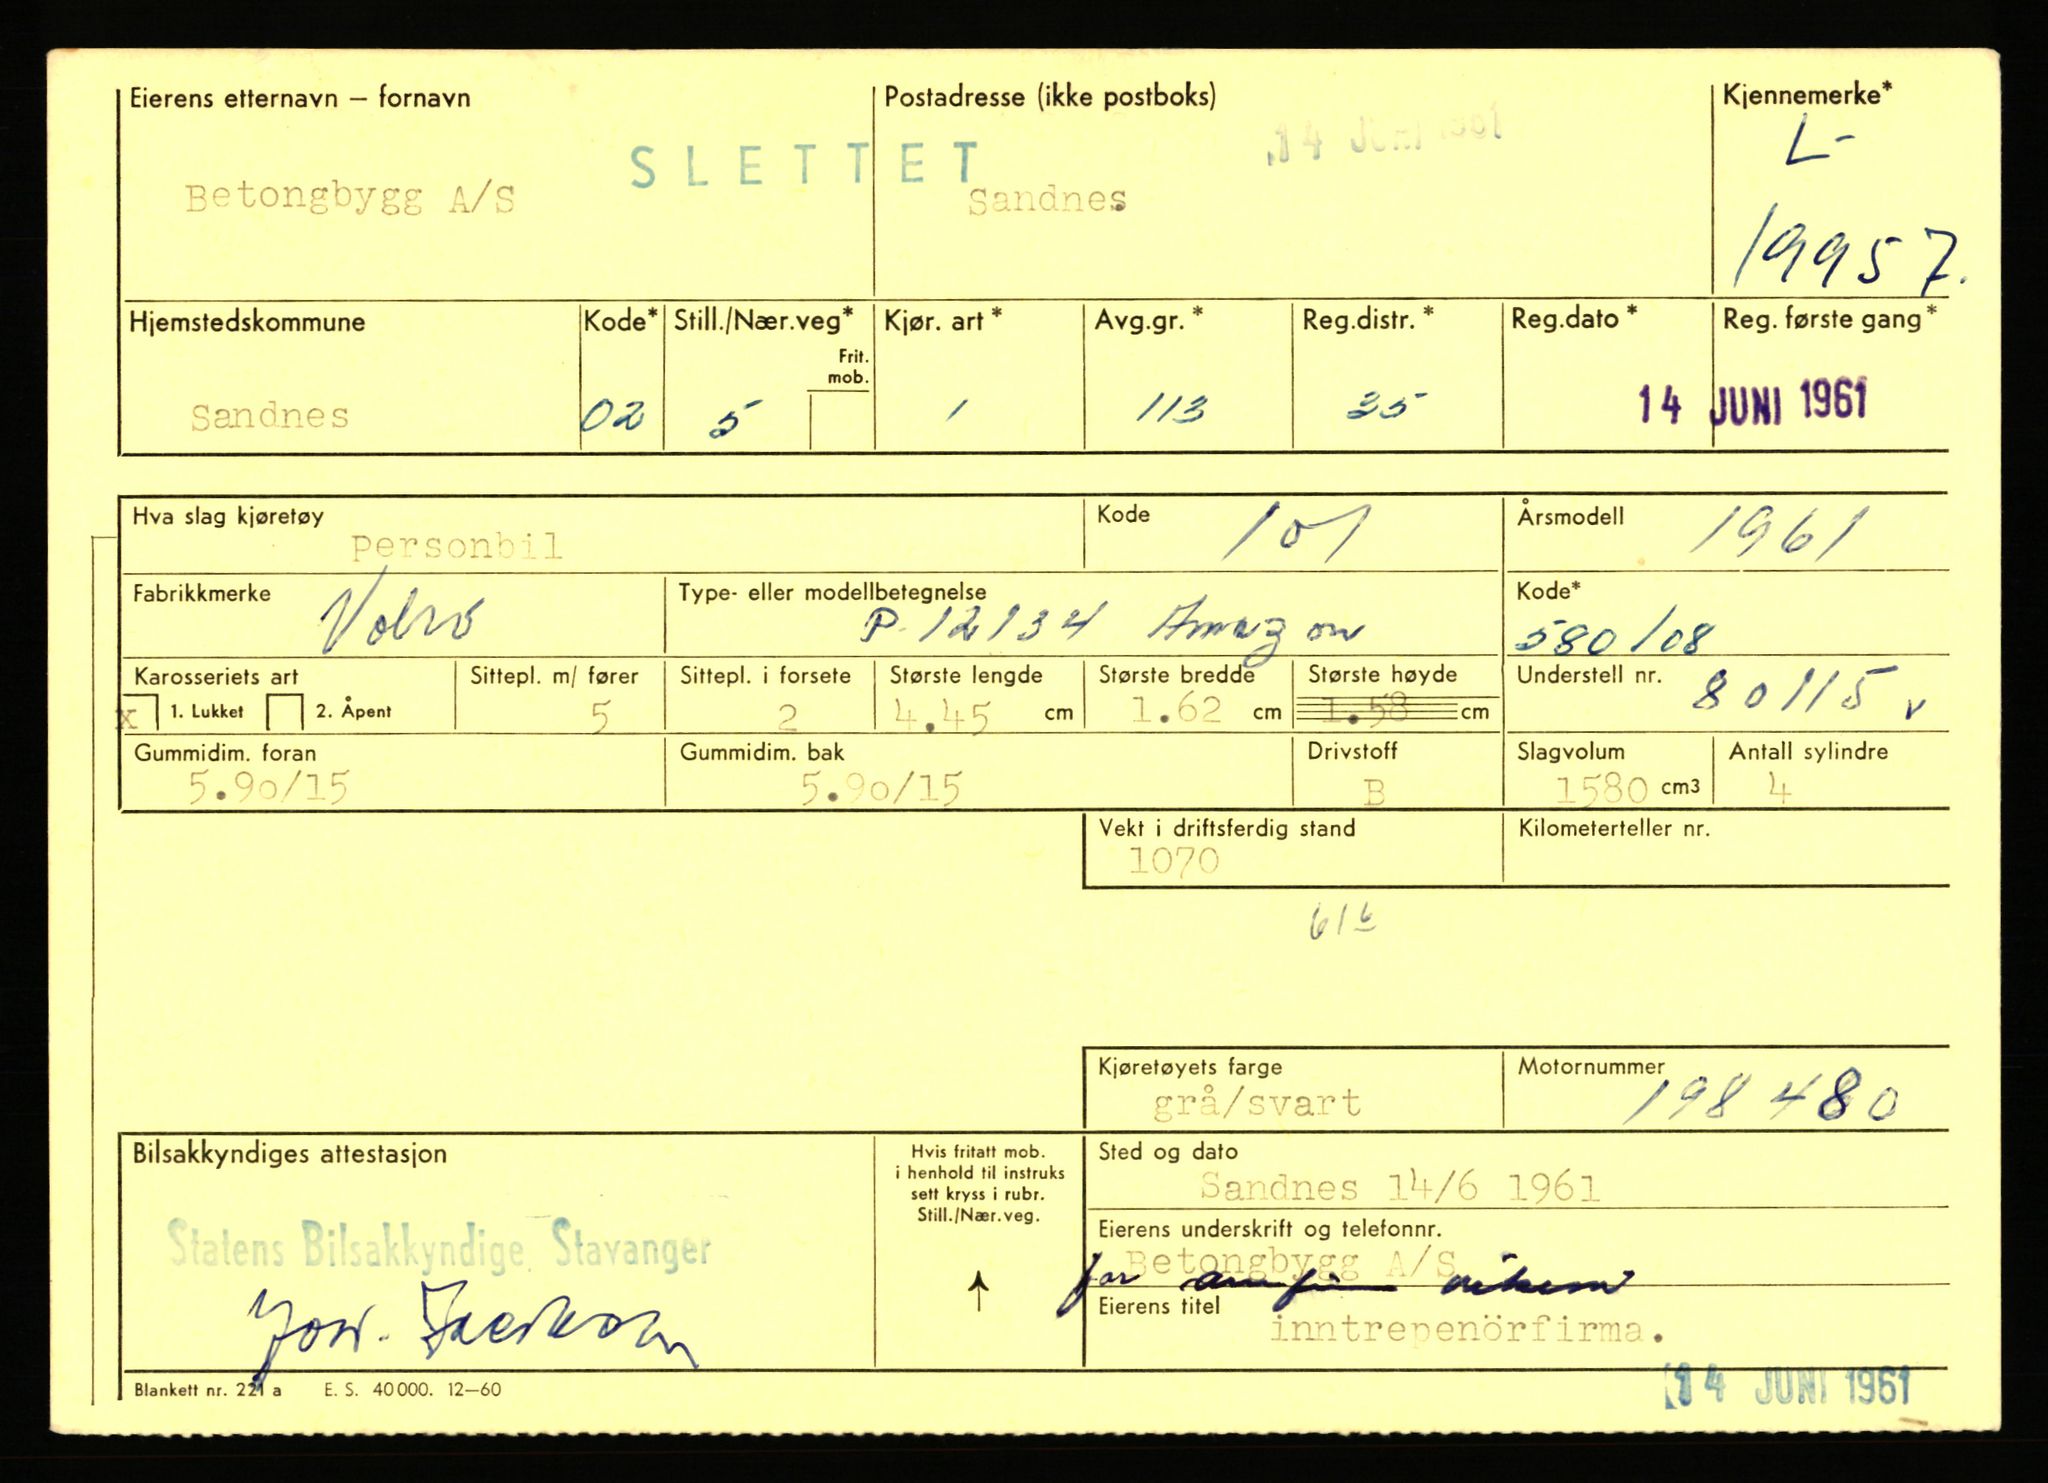 Eierens etternavn – fornavn
Postadresse (ikke postboks)
Kjennemerke*
14 JUNI 1961
L-
SLETTET
Betongbygg A/S
Sandnes
19957.
Hjemstedskommune
Kode*
Still./Nær.veg*
Frit. mob.
Kjør. art *
Avg.gr. *
Reg.distr. *
Reg.dato *
Reg. første gang*
Sandnes
02
5
1
113
35
14 JUNI 1961
Hva slag kjøretøy
personbil
Kode
101
Årsmodell
1961
Fabrikkmerke
Volvo
Type- eller modellbetegnelse
P. 12134 Amazon
Kode*
580108
Karosseriets art
x 1. Lukket 2. Åpent
Sittepl. m/ fører
5
Sittepl. i forsete
2
Største lengde
4.45 cm
Største bredde
1.62 cm
Største høyde
1.58 cm
Understell nr.
80115 v
Gummidim. foran
5.90/15
Gummidim. bak
5.90/15
Drivstoff
B
Slagvolum
1580 cm3
Antall sylindre
4
Vekt i driftsferdig stand
1070
Kilometerteller nr.
61 6
Kjøretøyets farge
grå/svart
Motornummer
198480
Bilsakkyndiges attestasjon
Statens Bilsakkyndige, Stavanger
Hvis fritatt mob.
i henhold til instruks
sett kryss i rubr.
Still./Nær.veg.
Sted og dato
Sandnes 14/6 1961
Eierens underskrift og telefonnr.
Betongbygg A/S
for
Eierens titel
inntrepenörfirma.
Blankett nr. 221 a E. S. 40 000. 12–60
14 JUNI 1961